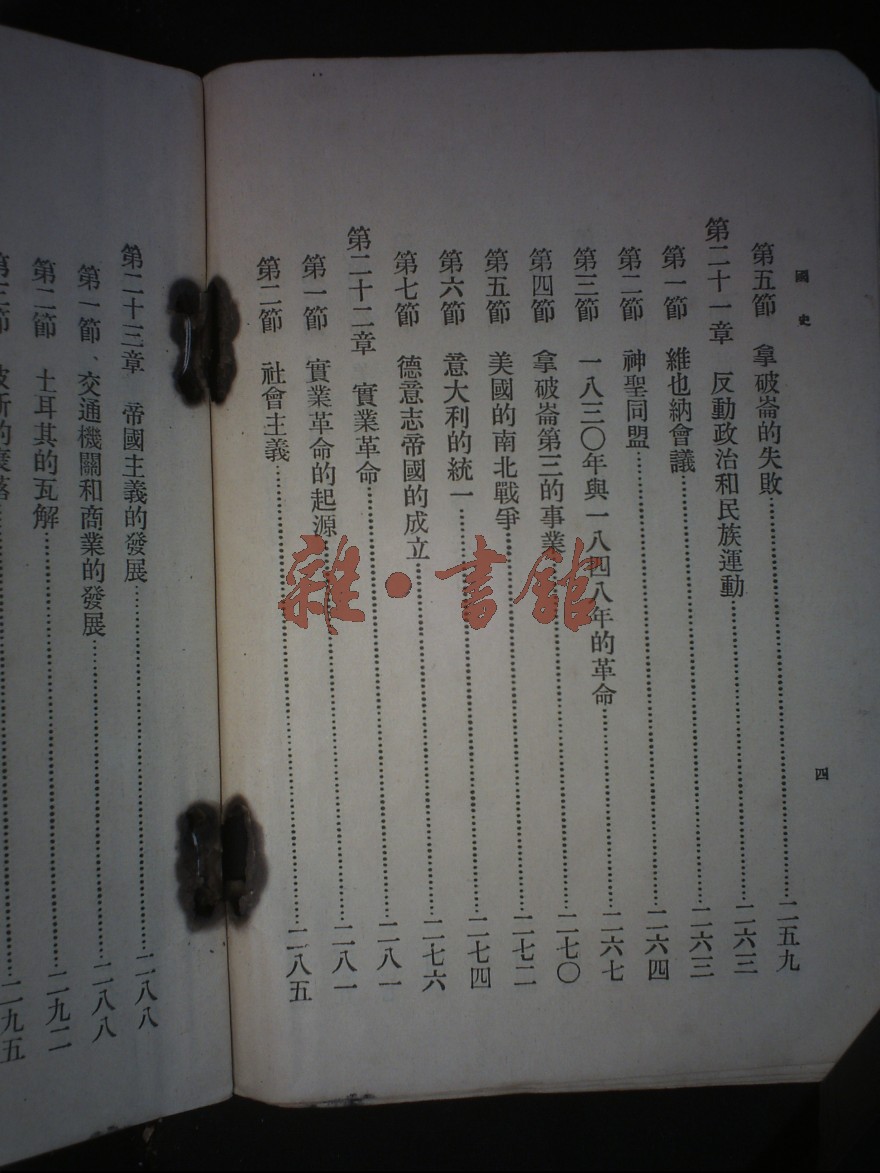 國史
四
第五節 拿破崙的失敗……二五九
第二十一章 反動政治和民族運動……二六三
第一節 維也納會議……二六三
第二節 神聖同盟……二六四
第三節 一八三〇年與一八四八年的革命……二六七
第四節 拿破崙第三的事業……二七〇
第五節 美國的南北戰爭……二七二
第六節 意大利的統一……二七四
第七節 德意志帝國的成立……二七六
第二十二章 實業革命……二八一
第一節 實業革命的起源……二八一
第二節 社會主義……二八五
第二十三章 帝國主義的發展……二八八
第一節、交通機關和商業的發展……二八八
第二節 土耳其的瓦解……二九二
第三節 波斯的衰落……二九五
雜·書館